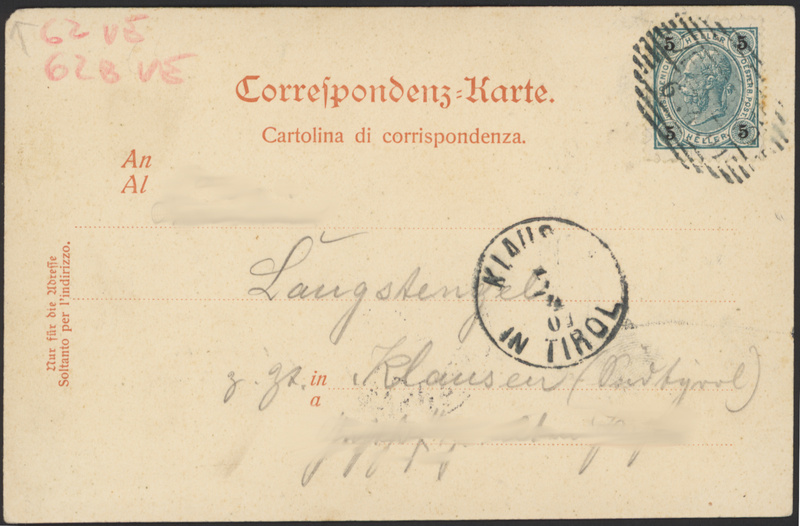 62 VE
62B VE
5 HELLER 5
OESTERR. POST
5 HELLER 5
Correſpondenz-Karte.
Cartolina di corrispondenza.
An
Al
Nur für die Adreſſe
Soltanto per l'indirizzo.
Langstengel
KLAUS
01
IN TIROL
z. Zt. in Klausen (Südtyrol)
a